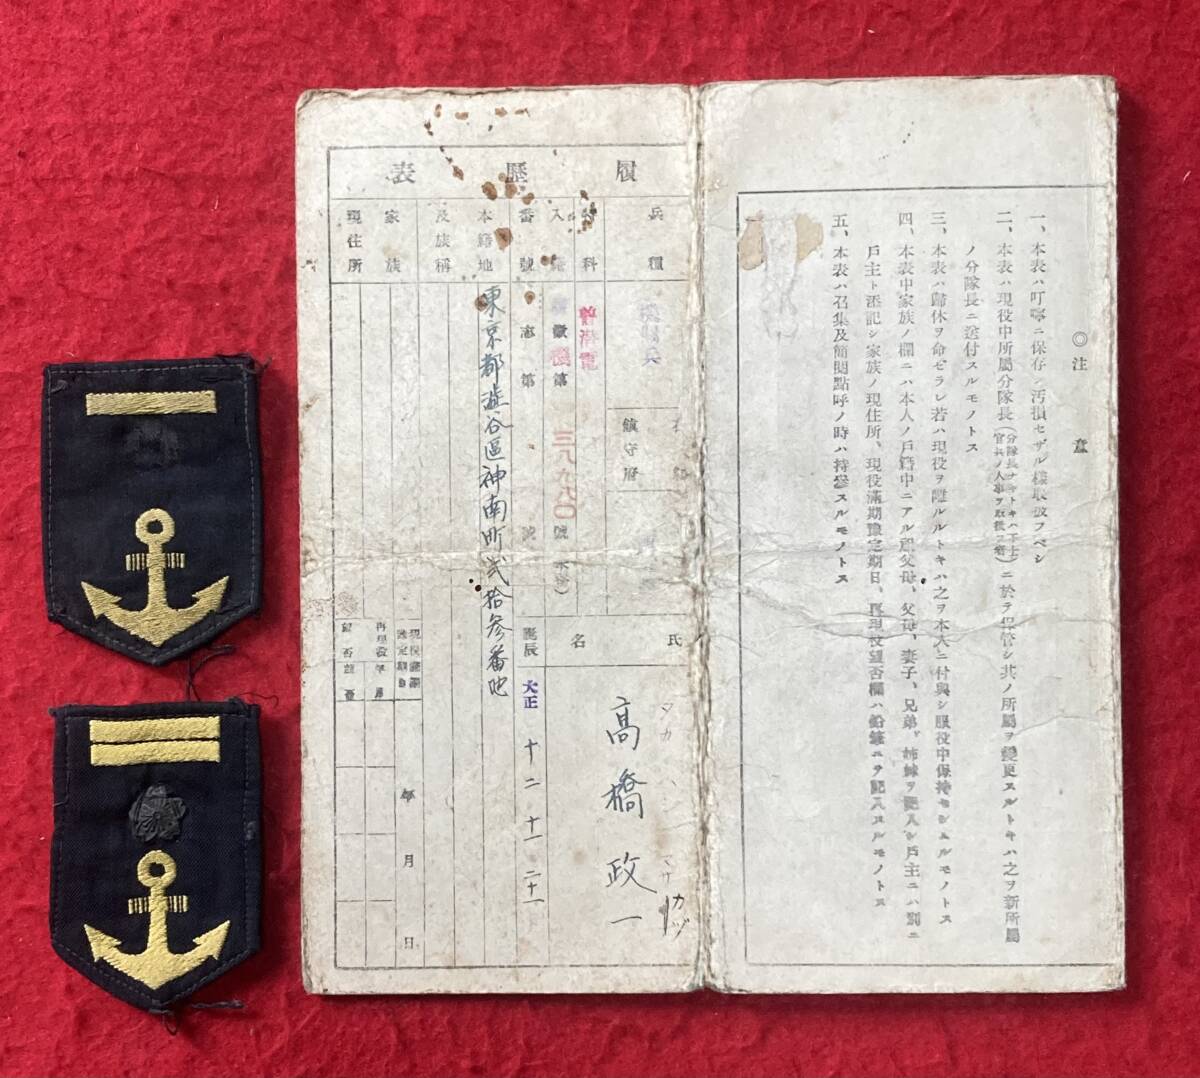 ◎注意
一、本表ハ叮嚀ニ保存シ汚損セザル樣取扱フベシ
二、本表ハ現役中所屬分隊長(分隊長ナキトキハ下士官兵ノ人事ヲ取扱フ者)ニ於テ保管シ其ノ所屬ヲ變更スルトキハ之ヲ新所屬
ノ分隊長ニ送付スルモノトス
三、本表ハ歸休ヲ命ゼラレ若ハ現役ヲ離ルルトキハ之ヲ本人ニ付與シ服役中保持セシムルモノトス
四、本表中家族ノ欄ニハ本人ノ戶籍中ニアル祖父母、父母、妻子、兄弟、姉妹ヲ記入シ戶主ニハ別ニ
戶主ト添記シ家族ノ現住所、現役滿期豫定期日、再現役望否欄ハ鉛筆ニテ記入スルモノトス
五、本表ハ召集及簡閱點呼ノ時ハ持參スルモノトス
履歷表
兵種
機關兵
鎭守府
氏名
タカハシ
カヅ
高橋政一
特科
普潛電
入籍番號
徵機第三九九〇號
志第 號
誕辰
大正十二 十一 二十一
本籍地
及族稱
東京都澁谷區神南町貳拾參番地
家族
現住所
現役滿期豫定期日
年月日
再現役